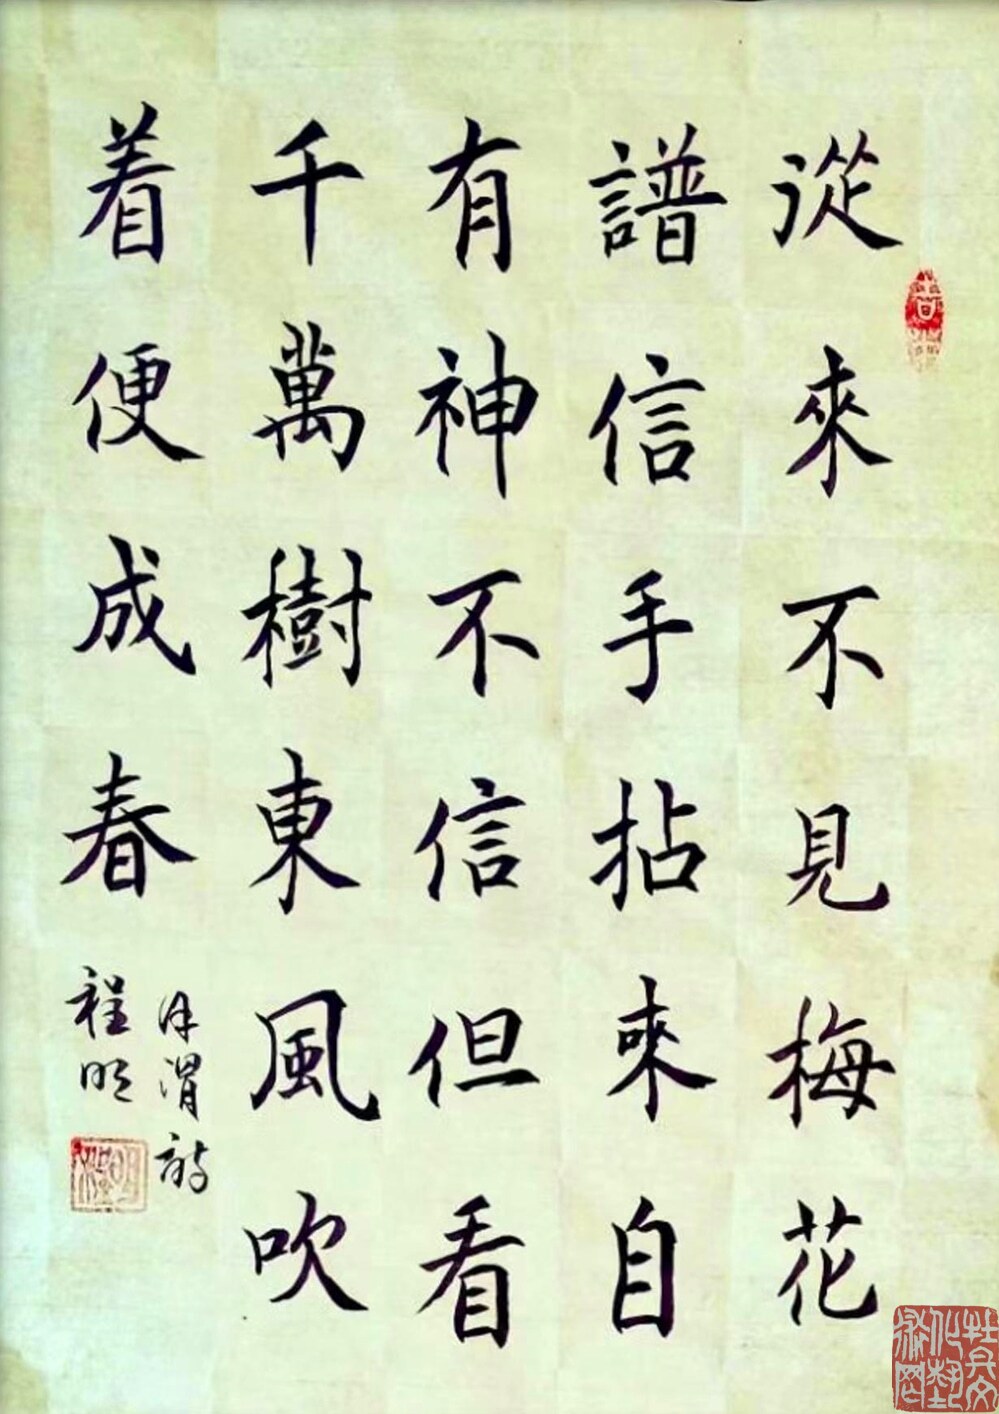 從來不見梅花
譜信手拈來自
有神不信但看
千萬樹東風吹
着便成春
徐渭詩
程明